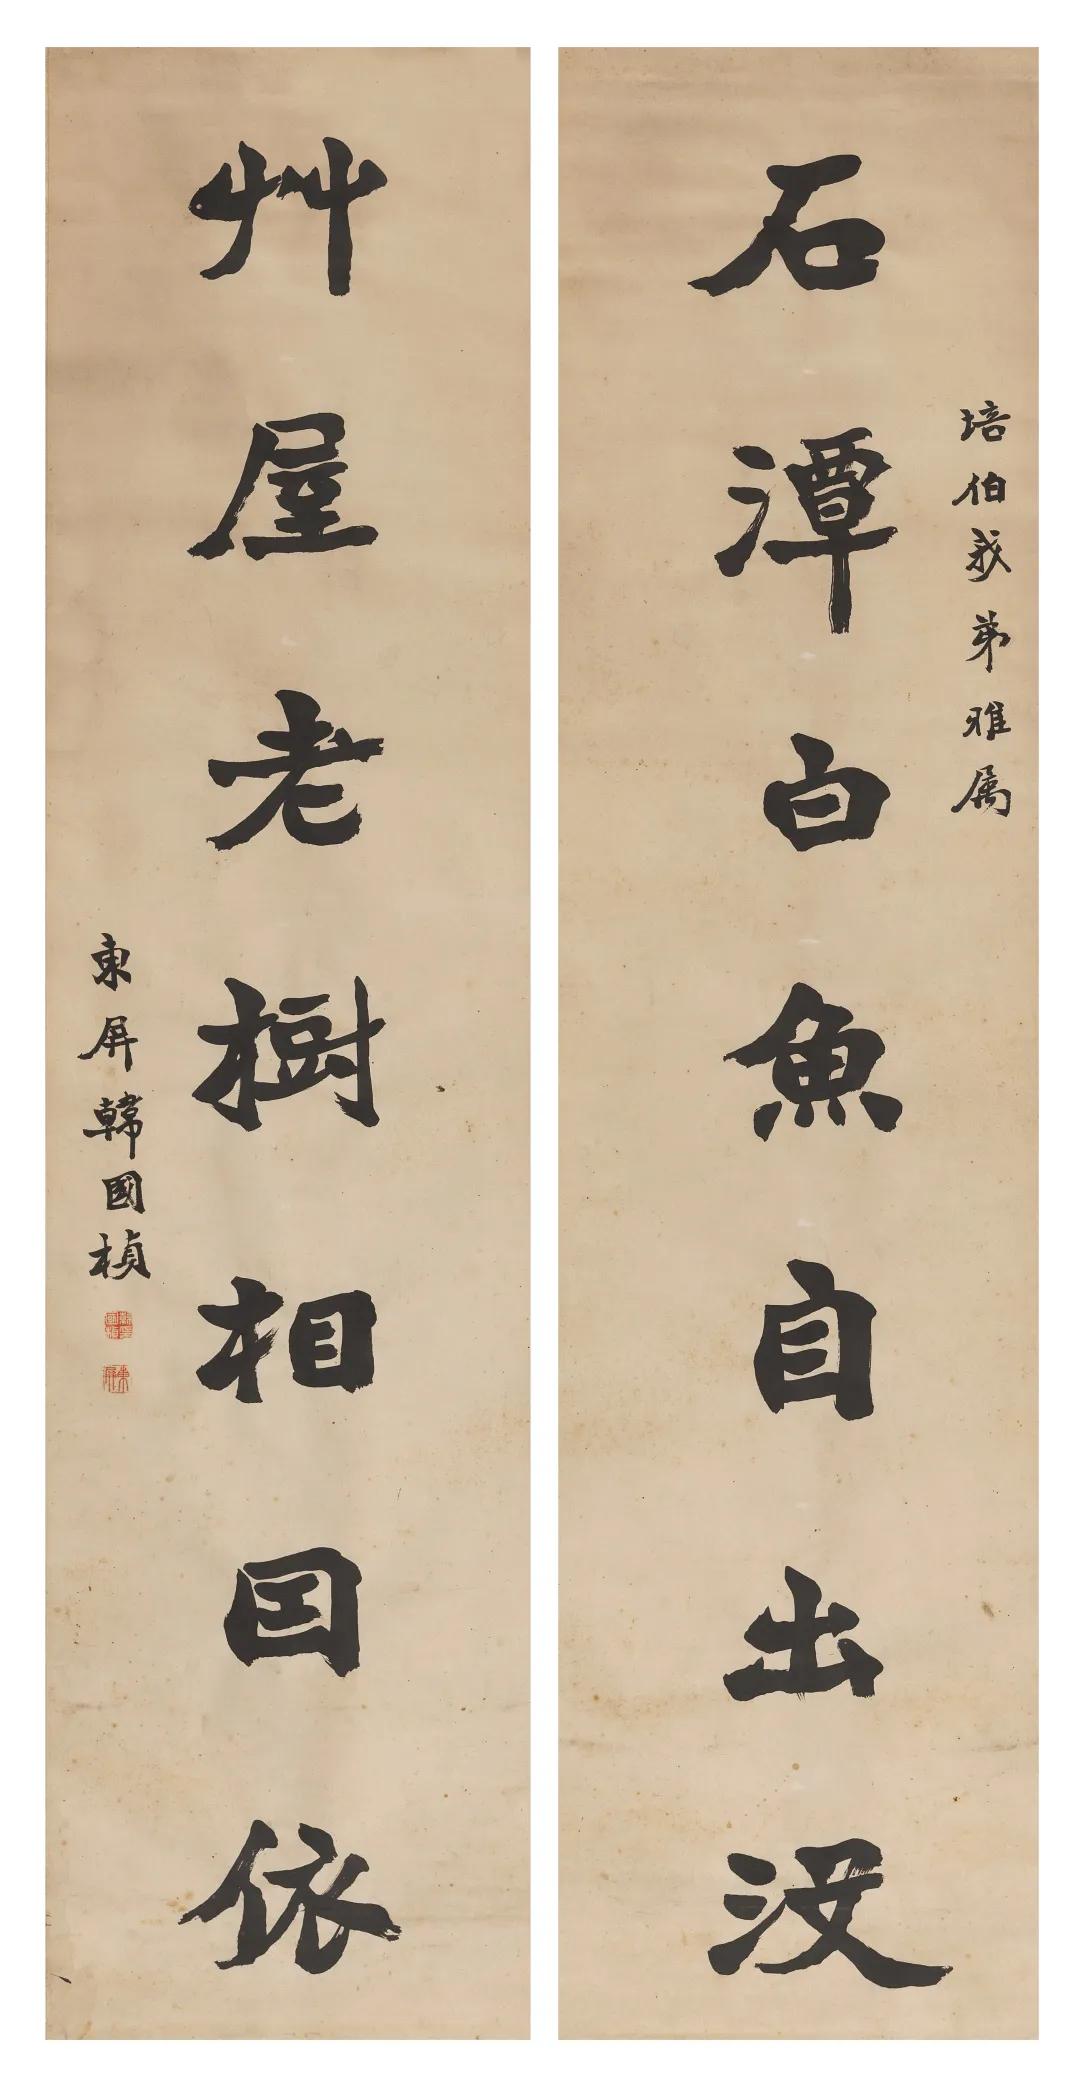 培伯我弟雅属
石潭白魚自出没
艸屋老樹相囙依
東屏韓國楨
東屏